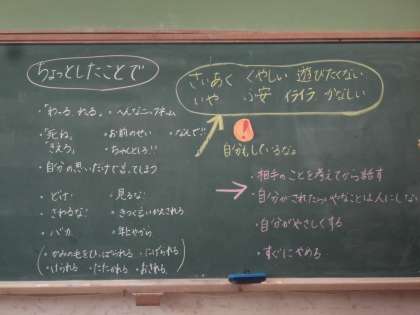 ちょっとしたことで
さいあく くやしい 遊びたくない
いや ふ安 イライラ かなしい
・へんなニックネーム
・「死ね。 きえろ」
・お前のせい ・なんで!!
・ちゃんとしろ!!
・自分の思いだけで言ってしまう
・どけ! ・見るな!
・さわるな! ・きつく言いかえされる
・バカ ・年上やから
・かみの毛をひっぱられる ・にげられる
・けられる ・たたかれる ・おされる
!
自分もしているな。
・相手のことを考えてから話す
・自分がされたらいやなことは人にしない
・自分がやさしくする
・すぐにやめる